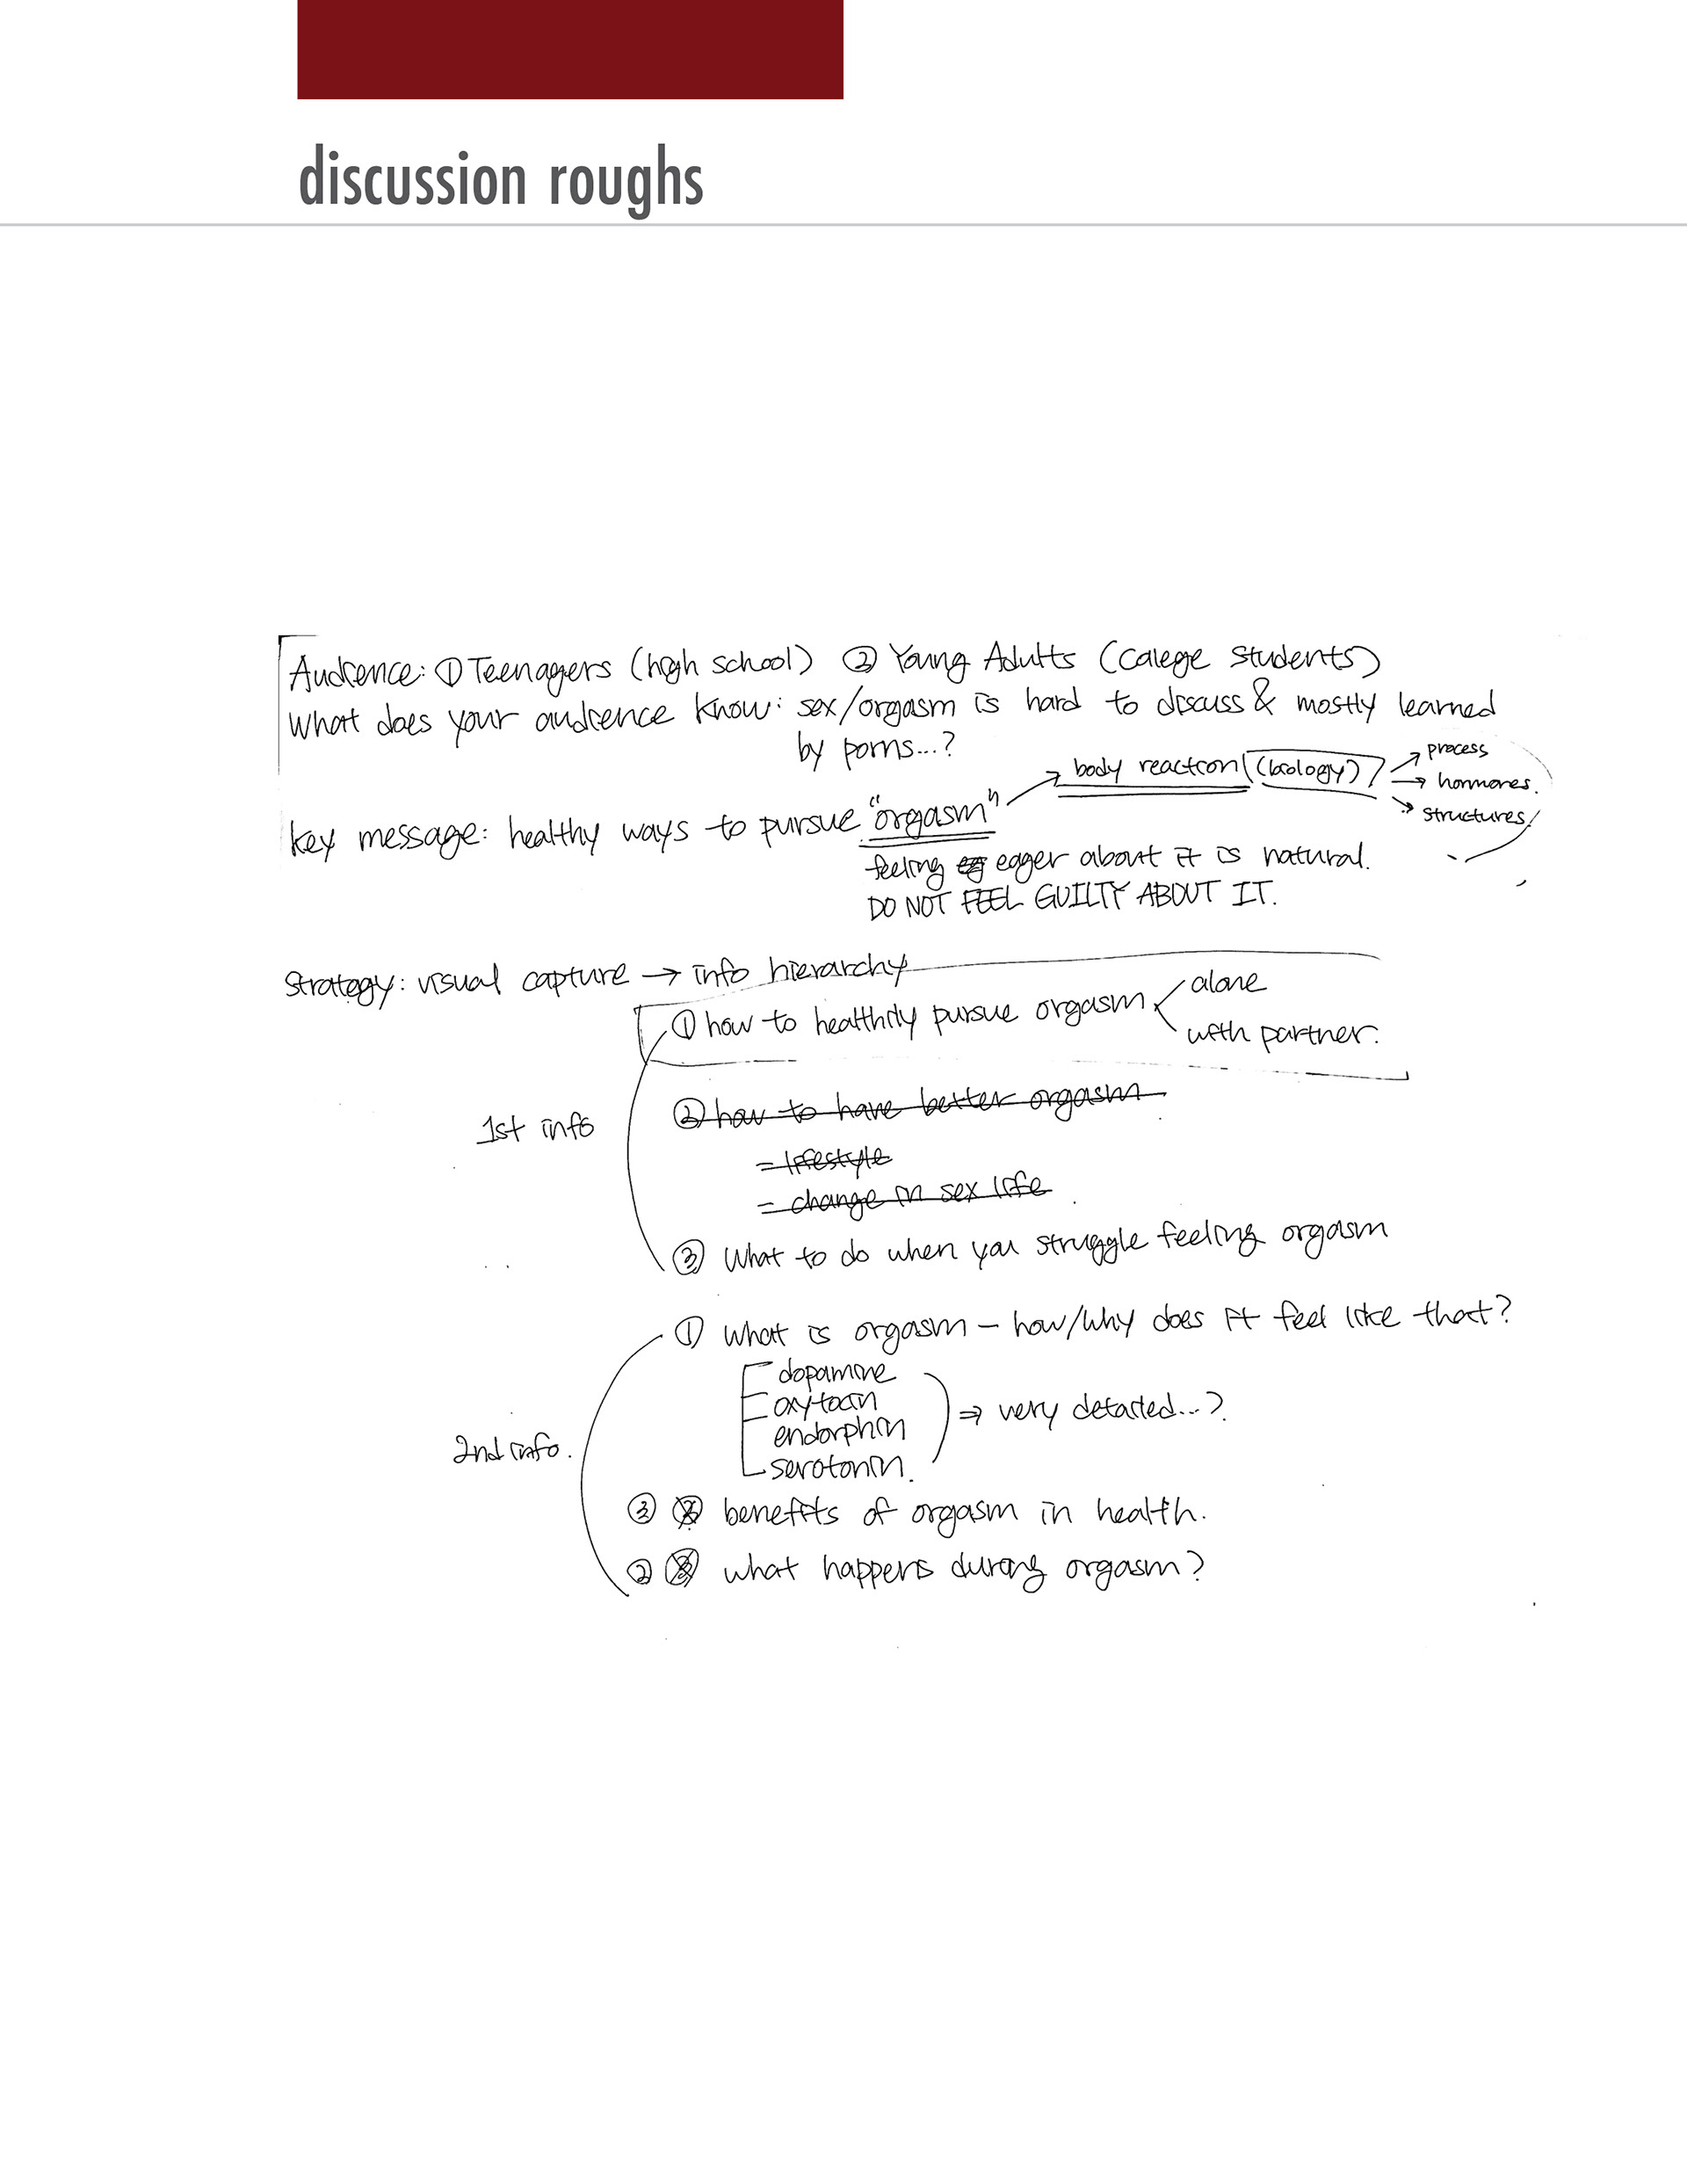 discussion roughs
Audience: ① Teenagers (high school) ② Young Adults (College students)
What does your audience know: sex/orgasm is hard to discuss & mostly learned
by porns...?
Key message: healthy ways to pursue "orgasm" → body reaction (biology)
→ process
→ hormones.
→ structures
feeling eager about it is natural.
DO NOT FEEL GUILTY ABOUT IT.
Strategy: visual capture → info hierarchy
① how to healthily pursue orgasm
alone
with partner.
1st info
② how to have better orgasm
= lifestyle
= change in sex life
③ What to do when you struggle feeling orgasm
① What is orgasm – how/why does it feel like that?
dopamine
oxytocin
endorphin
serotonin.
⇒ very detailed...?
2nd info.
③ benefits of orgasm in health.
② what happens during orgasm?